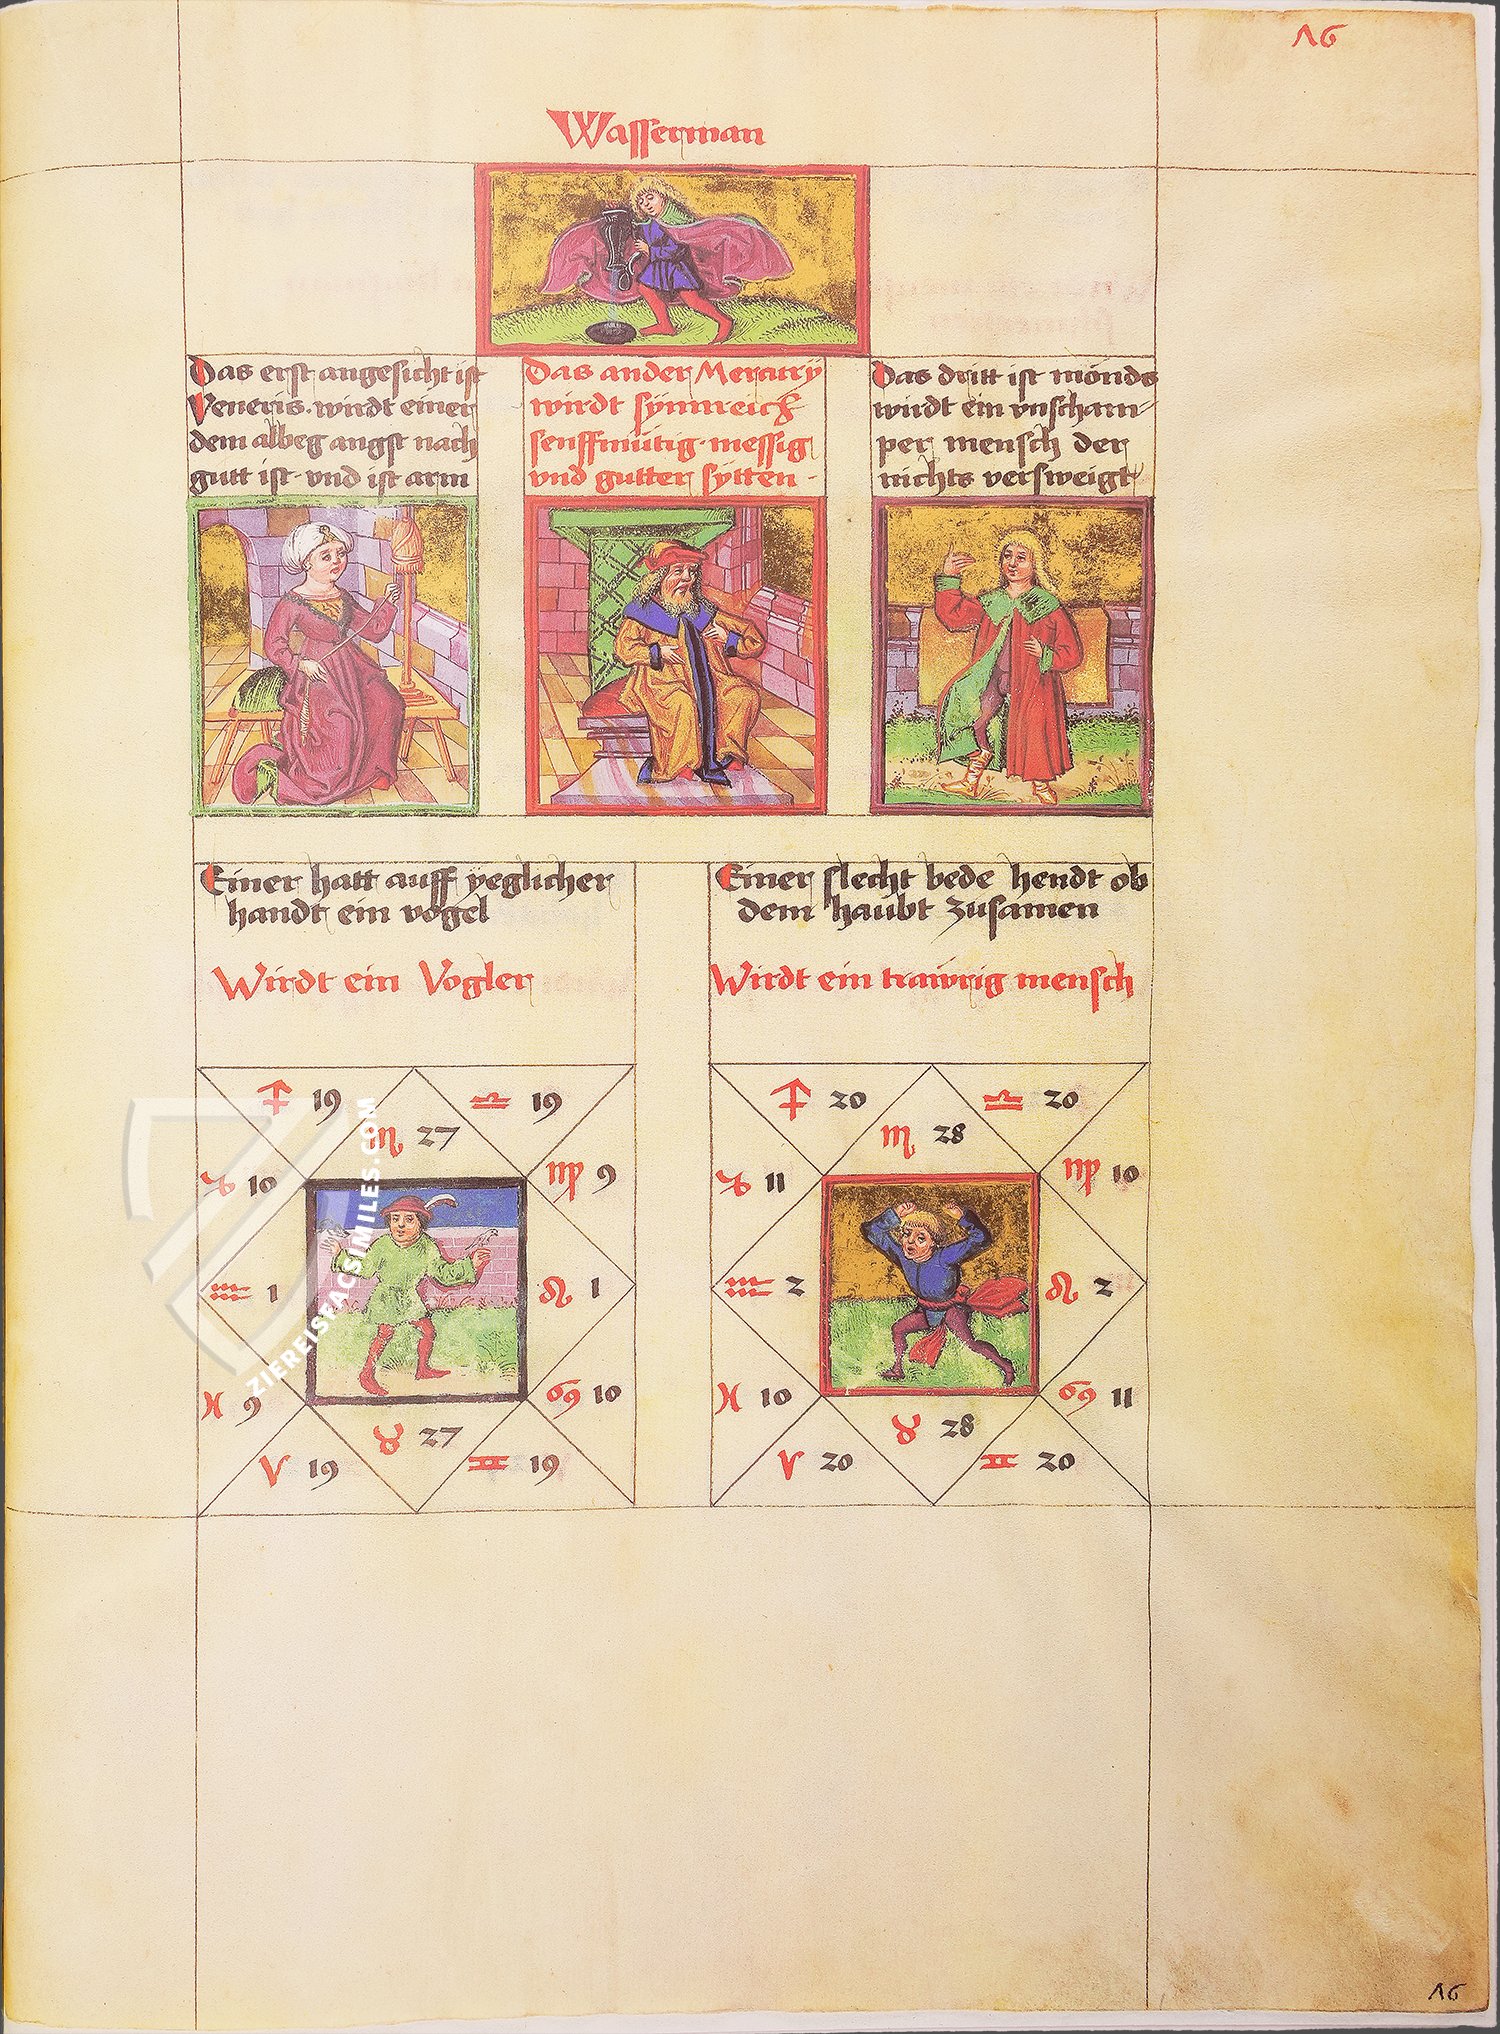 16
Wasserman
Das erst angesicht ist
Veneris. wirdt einer
dem albeg angst nach
gutt ist. vnd ist arm
Das ander Mercurÿ
wirdt sÿnnreich
senfftmütig. messig
vnd gutter sÿtten -
Das dritt ist mönds
wirdt ein vnscham-
per mensch der
nichts versweigt
Einer hatt auff yeglicher
handt ein vogel
Wirdt ein Vogler
Einer slecht bede hendt ob
dem haubt zusamen
Wirdt ein trawrig mensch
♐ 19 ♎ 19
♏ 27
♑ 10 ♍ 9
♒ 1 ♌ 1
♓ 9 ♋ 10
♉ 27
♈ 19 ♊ 19
♐ 20 ♎ 20
♏ 28
♑ 11 ♍ 10
♒ 2 ♌ 2
♓ 10 ♋ 11
♉ 28
♈ 20 ♊ 20
ZIEREISFACSIMILES.COM
16